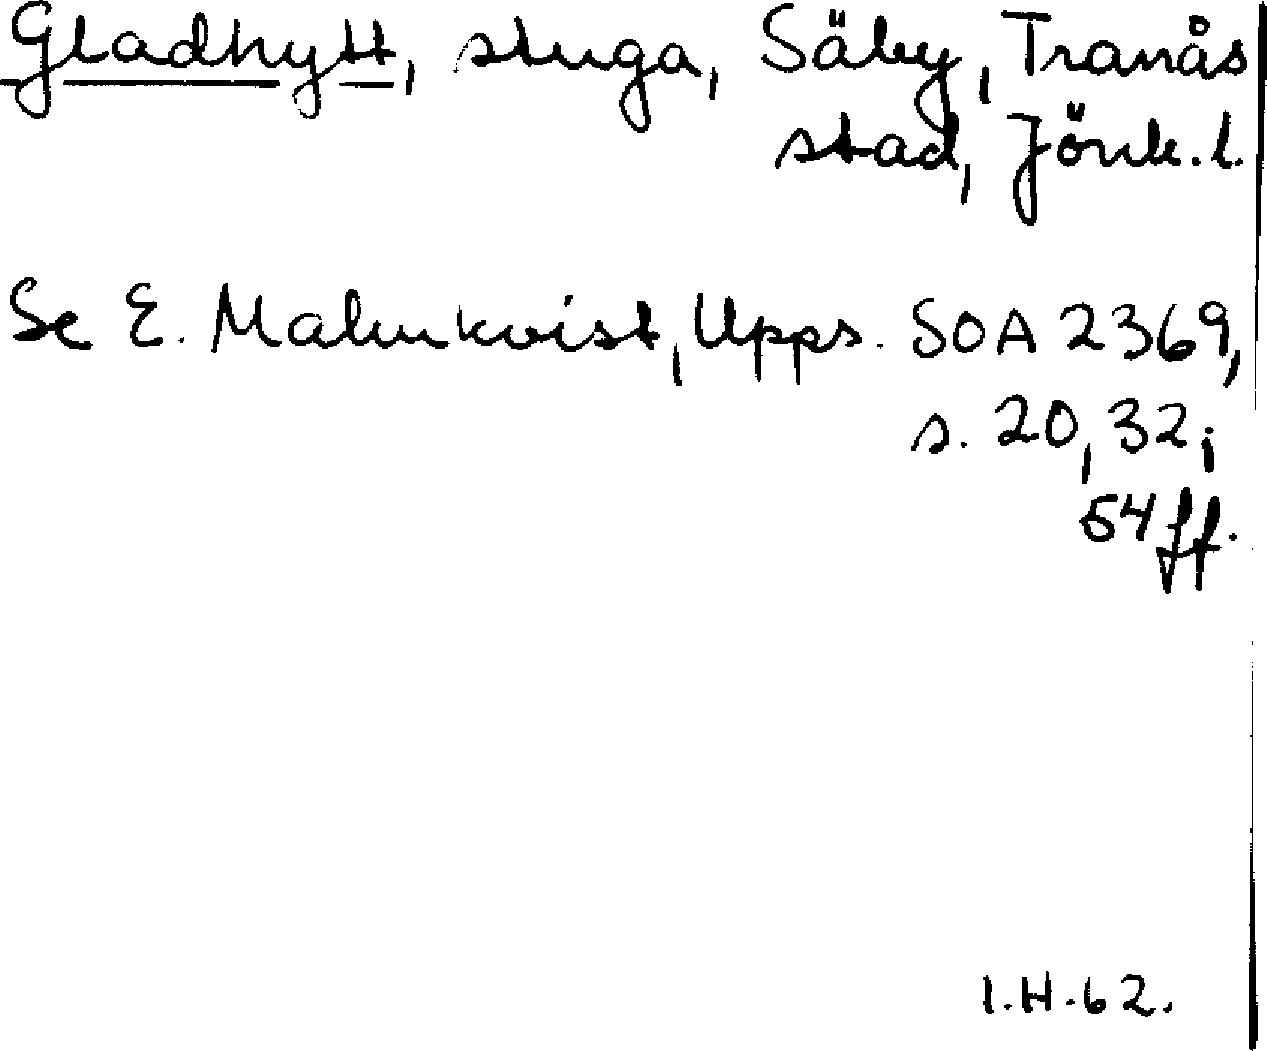 Gladhytt, stuga, Säby, Tranås
stad, Jönk. l.
Se E. Malmkvist, Upps. SOA 2369,
s. 20, 32;
54 ff.
I.H. 62.